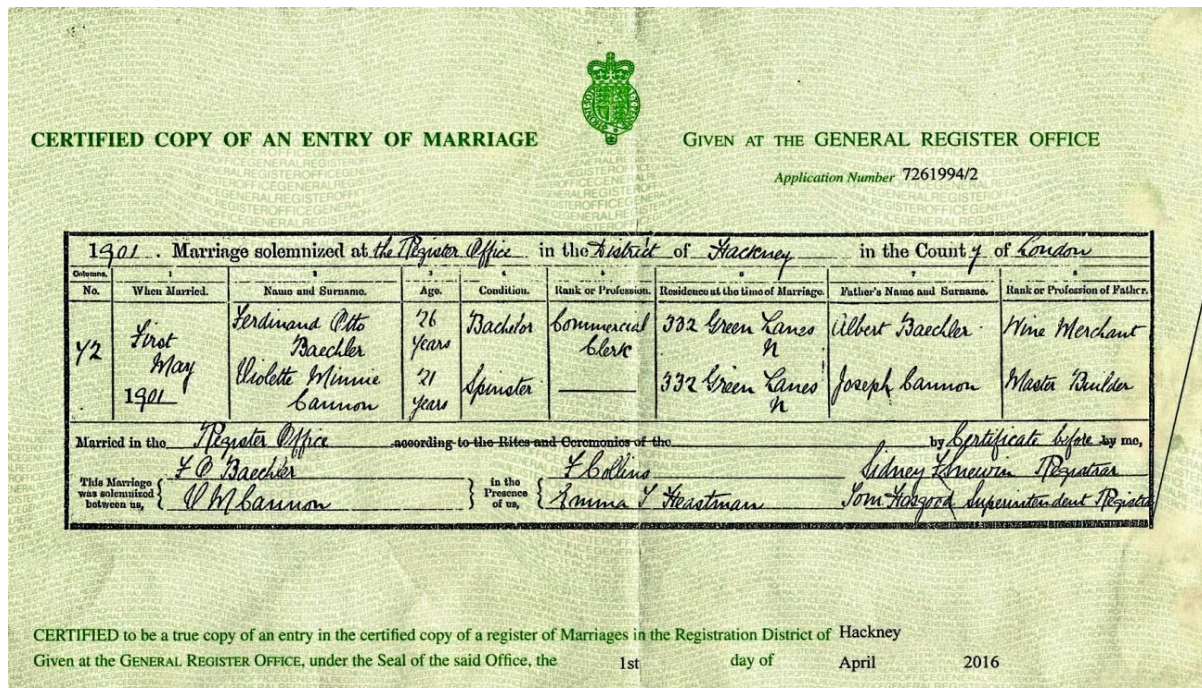 CERTIFIED COPY OF AN ENTRY OF MARRIAGE
GIVEN AT THE GENERAL REGISTER OFFICE
Application Number 7261994/2
1901. Marriage solemnized at the Register Office in the District of Hackney in the County of London
Columns. 1 2 3 4 5 6 7 8
No. When Married. Name and Surname. Age. Condition. Rank or Profession. Residence at the time of Marriage. Father's Name and Surname. Rank or Profession of Father.
42 First May 1901
Ferdinand Otto Baechler 26 years Bachelor Commercial Clerk 332 Green Lanes N Albert Baechler Wine Merchant
Violette Minnie Cannon 21 years Spinster 332 Green Lanes N Joseph Cannon Master Builder
Married in the Register Office according to the Rites and Ceremonies of the by Certificate before by me,
This Marriage was solemnized between us, { F O Baechler
V M Cannon }
in the Presence of us, { F Collins
Emma Heastman
Sidney Registrar
Tom Superintendent Registrar
CERTIFIED to be a true copy of an entry in the certified copy of a register of Marriages in the Registration District of Hackney
Given at the GENERAL REGISTER OFFICE, under the Seal of the said Office, the 1st day of April 2016